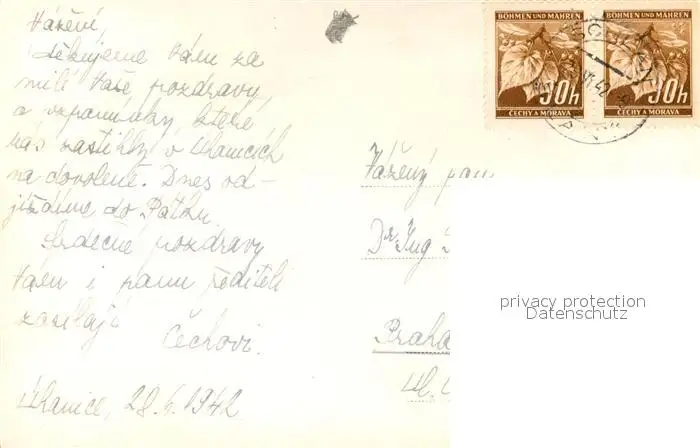 Vážení,
děkujeme Vám za
milé Vaše pozdravy
a vzpomínky, které
nás zastihly v Úhonicích
na dovolené. Dnes od-
jíždíme do Pátku.
Srdečné pozdravy
Vám i panu řediteli
zasílají
Čechovi.
28.6.1942
BÖHMEN UND MÄHREN
50h
ČECHY A MORAVA
BÖHMEN UND MÄHREN
50h
ČECHY A MORAVA
Vážený pan
Dr Ing
Praha
Ul.
privacy protection
Datenschutz